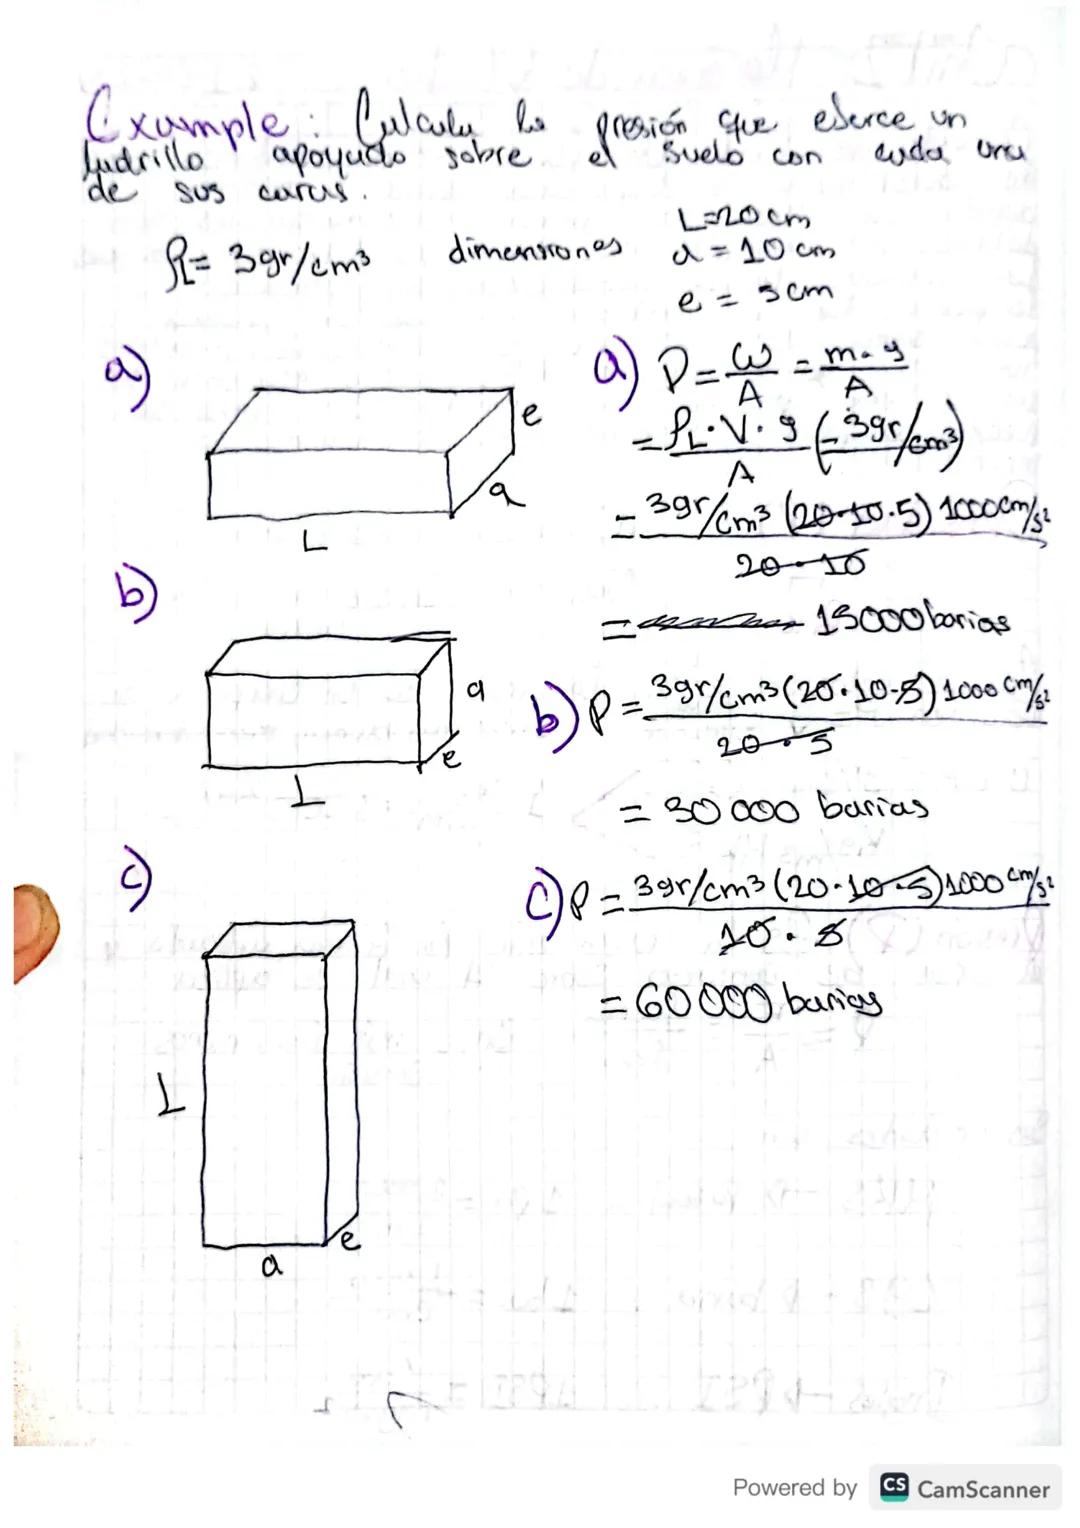 Example: Calcula la presión que eserce un
ladrillo apoyado sobre el suelo con cada una
de sus caras.
L=20 cm
ρL= 3gr/cm³ dimensiones a = 10 cm
e = 5cm
a)
e
a
L
a) P = W/A = m·g/A
= ρL·V·g/A (= 3gr/cm³)
= 3gr/cm³ (20·10·5) 1000cm/s² / 20·10
= 15000 barias
b)
a
e
L
b) P = 3gr/cm³ (20·10·5) 1000 cm/s² / 20·5
= 30 000 barias
c)
L
a
e
c) P = 3gr/cm³ (20·10·5) 1000 cm/s² / 10·5
= 60 000 barias
Powered by CS CamScanner